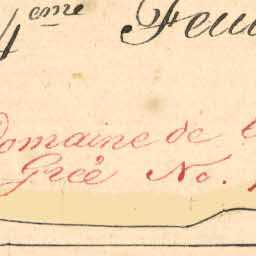 4eme Feui
Domaine de
Greé No.